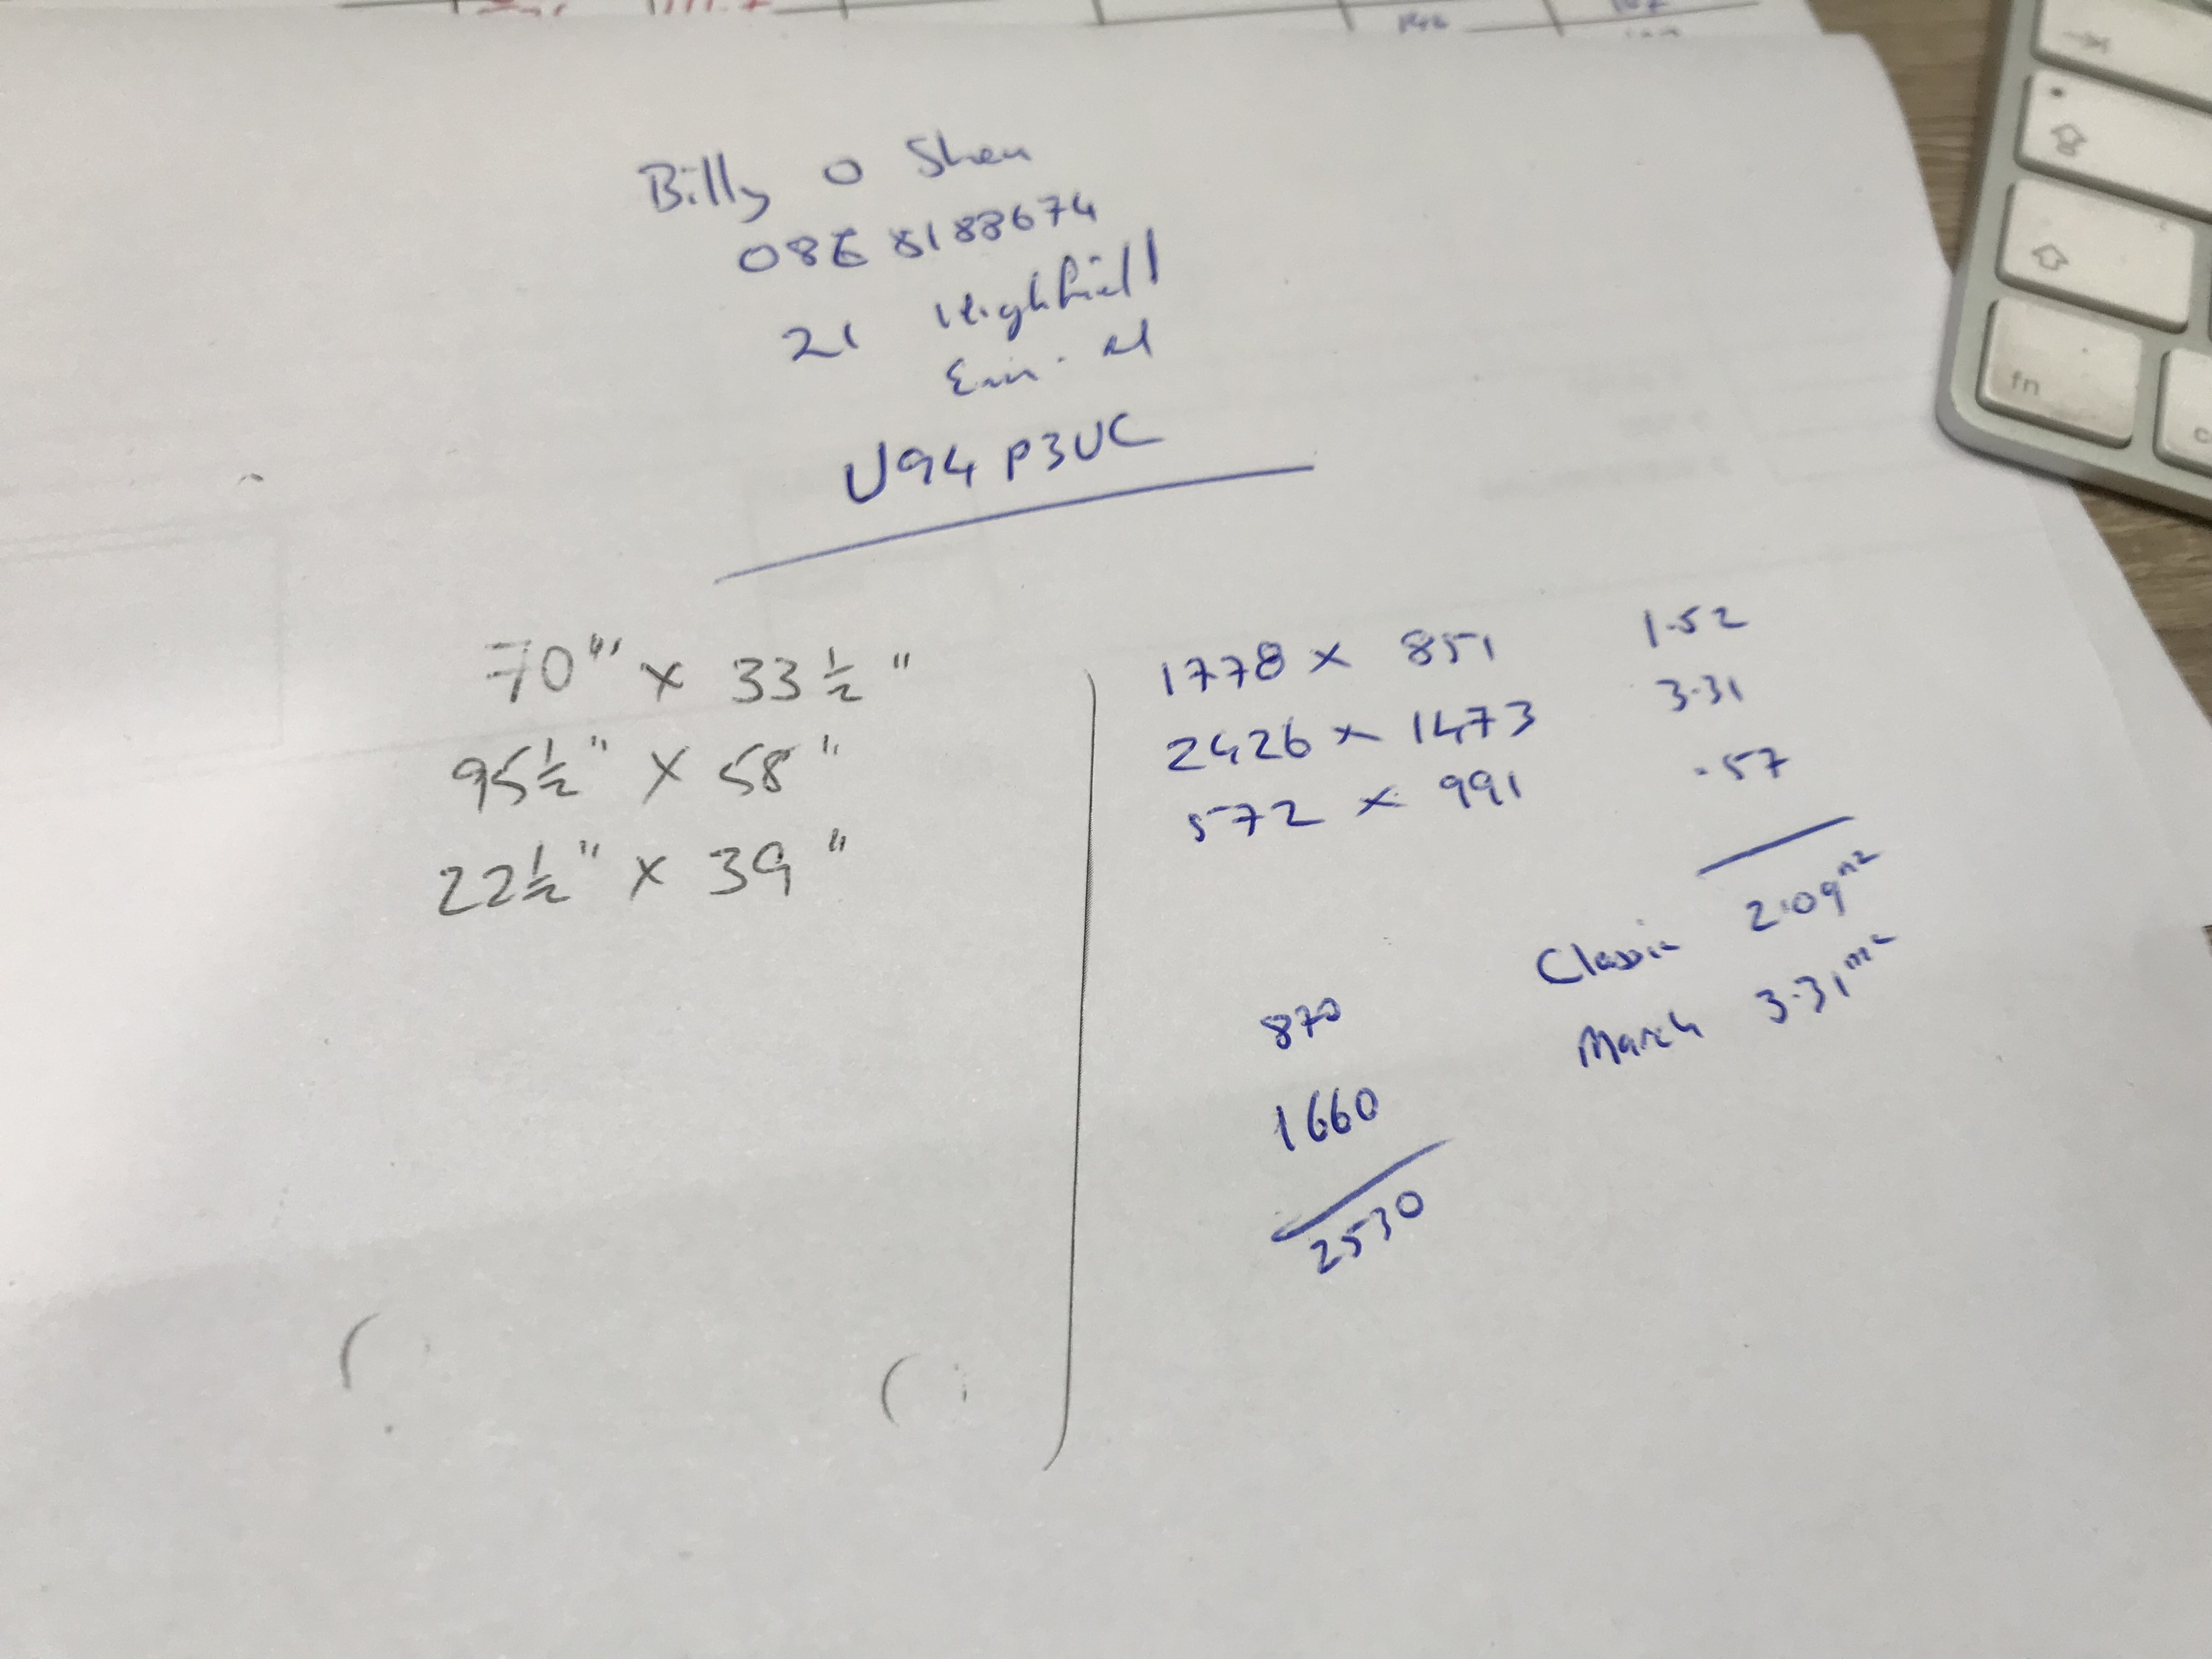 Billy O Shea
086 8188674
21 Highfield
U94 P3UC
70" x 33 ½"
95½" x 58"
22½" x 39"
1778 x 851 1.52
2426 x 1473 3.31
572 x 991 .57
Classic 2.09m2
March 3.31m2
870
1660
2530
fn